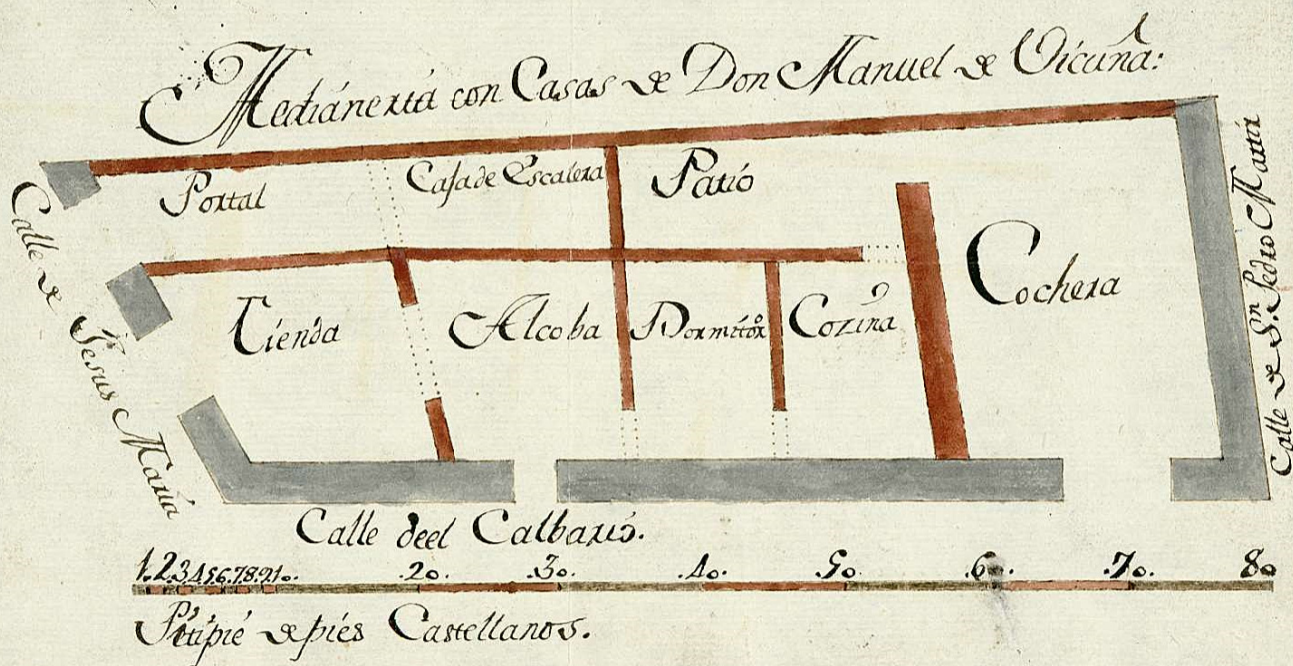 Medianeria con Casas de Don Manuel de Vicuña:
Portal
Casa de Escalera
Patio
Cochera
Tienda
Alcoba
Dormitor.º
Cozina
Calle de Jesus Maria
Calle de Sn. Pedro Martir
Calle deel Calbario.
1.2.3.4.5.6.7.8.9.10. .20. .30. .40. .50. .60. .70. 80
Pitipie de pies Castellanos.